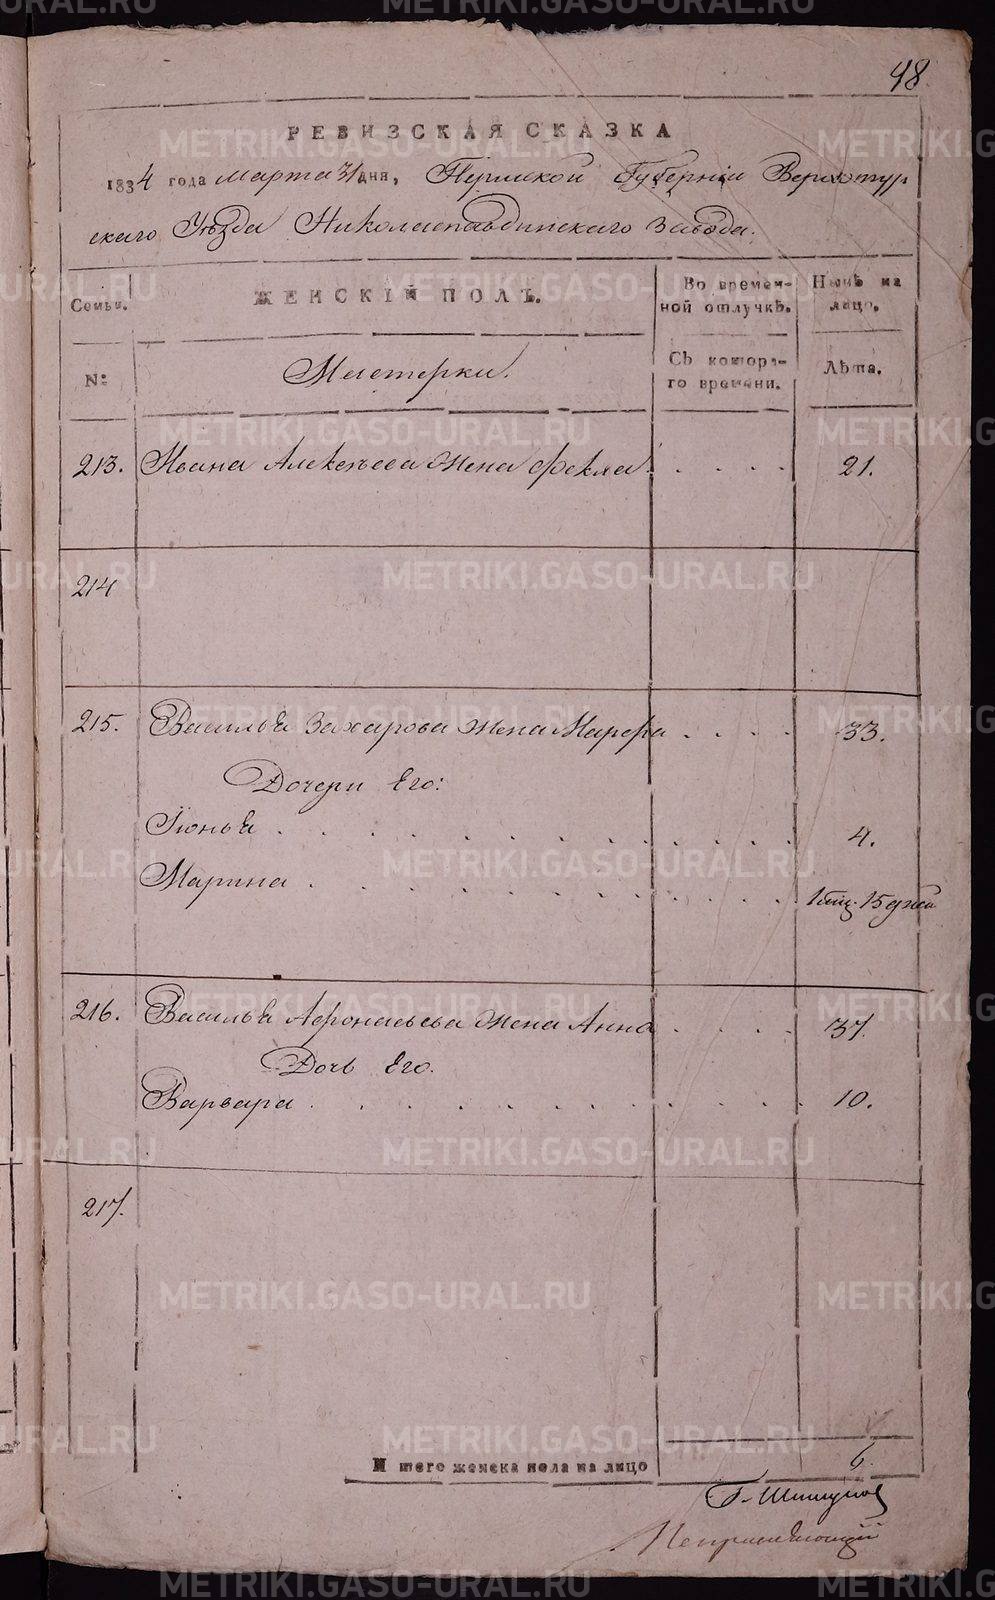 48
РЕВИЗСКАЯ СКАЗКА
1834 года марта 31 дня, Пермской Губернiи Верхотур
скаго Уѣзда Николаепавдинскаго Завода.
Семьи. ЖЕНСКIЙ ПОЛЪ. Во времен- Нынѣ на
ной отлучкѣ. лицо.
№ Мастерки. Съ котора- Лѣта.
го времени.
213. Ивана Алексѣева жена Фекла . . . . 21.
214
215. Василья Захарова жена Марфа . . . . 33.
Дочери Его:
Iюнья . . . . . . . . . . . 4.
Марина . . . . . . . . . . . 1 мц. 15 дней
216. Василья Афонасьева жена Анна . . . . 37.
Дочь Его.
Варвара . . . . . . . . . . . 10.
217.
И того женска пола на лицо 6.
METRIKI.GASO-URAL.RU